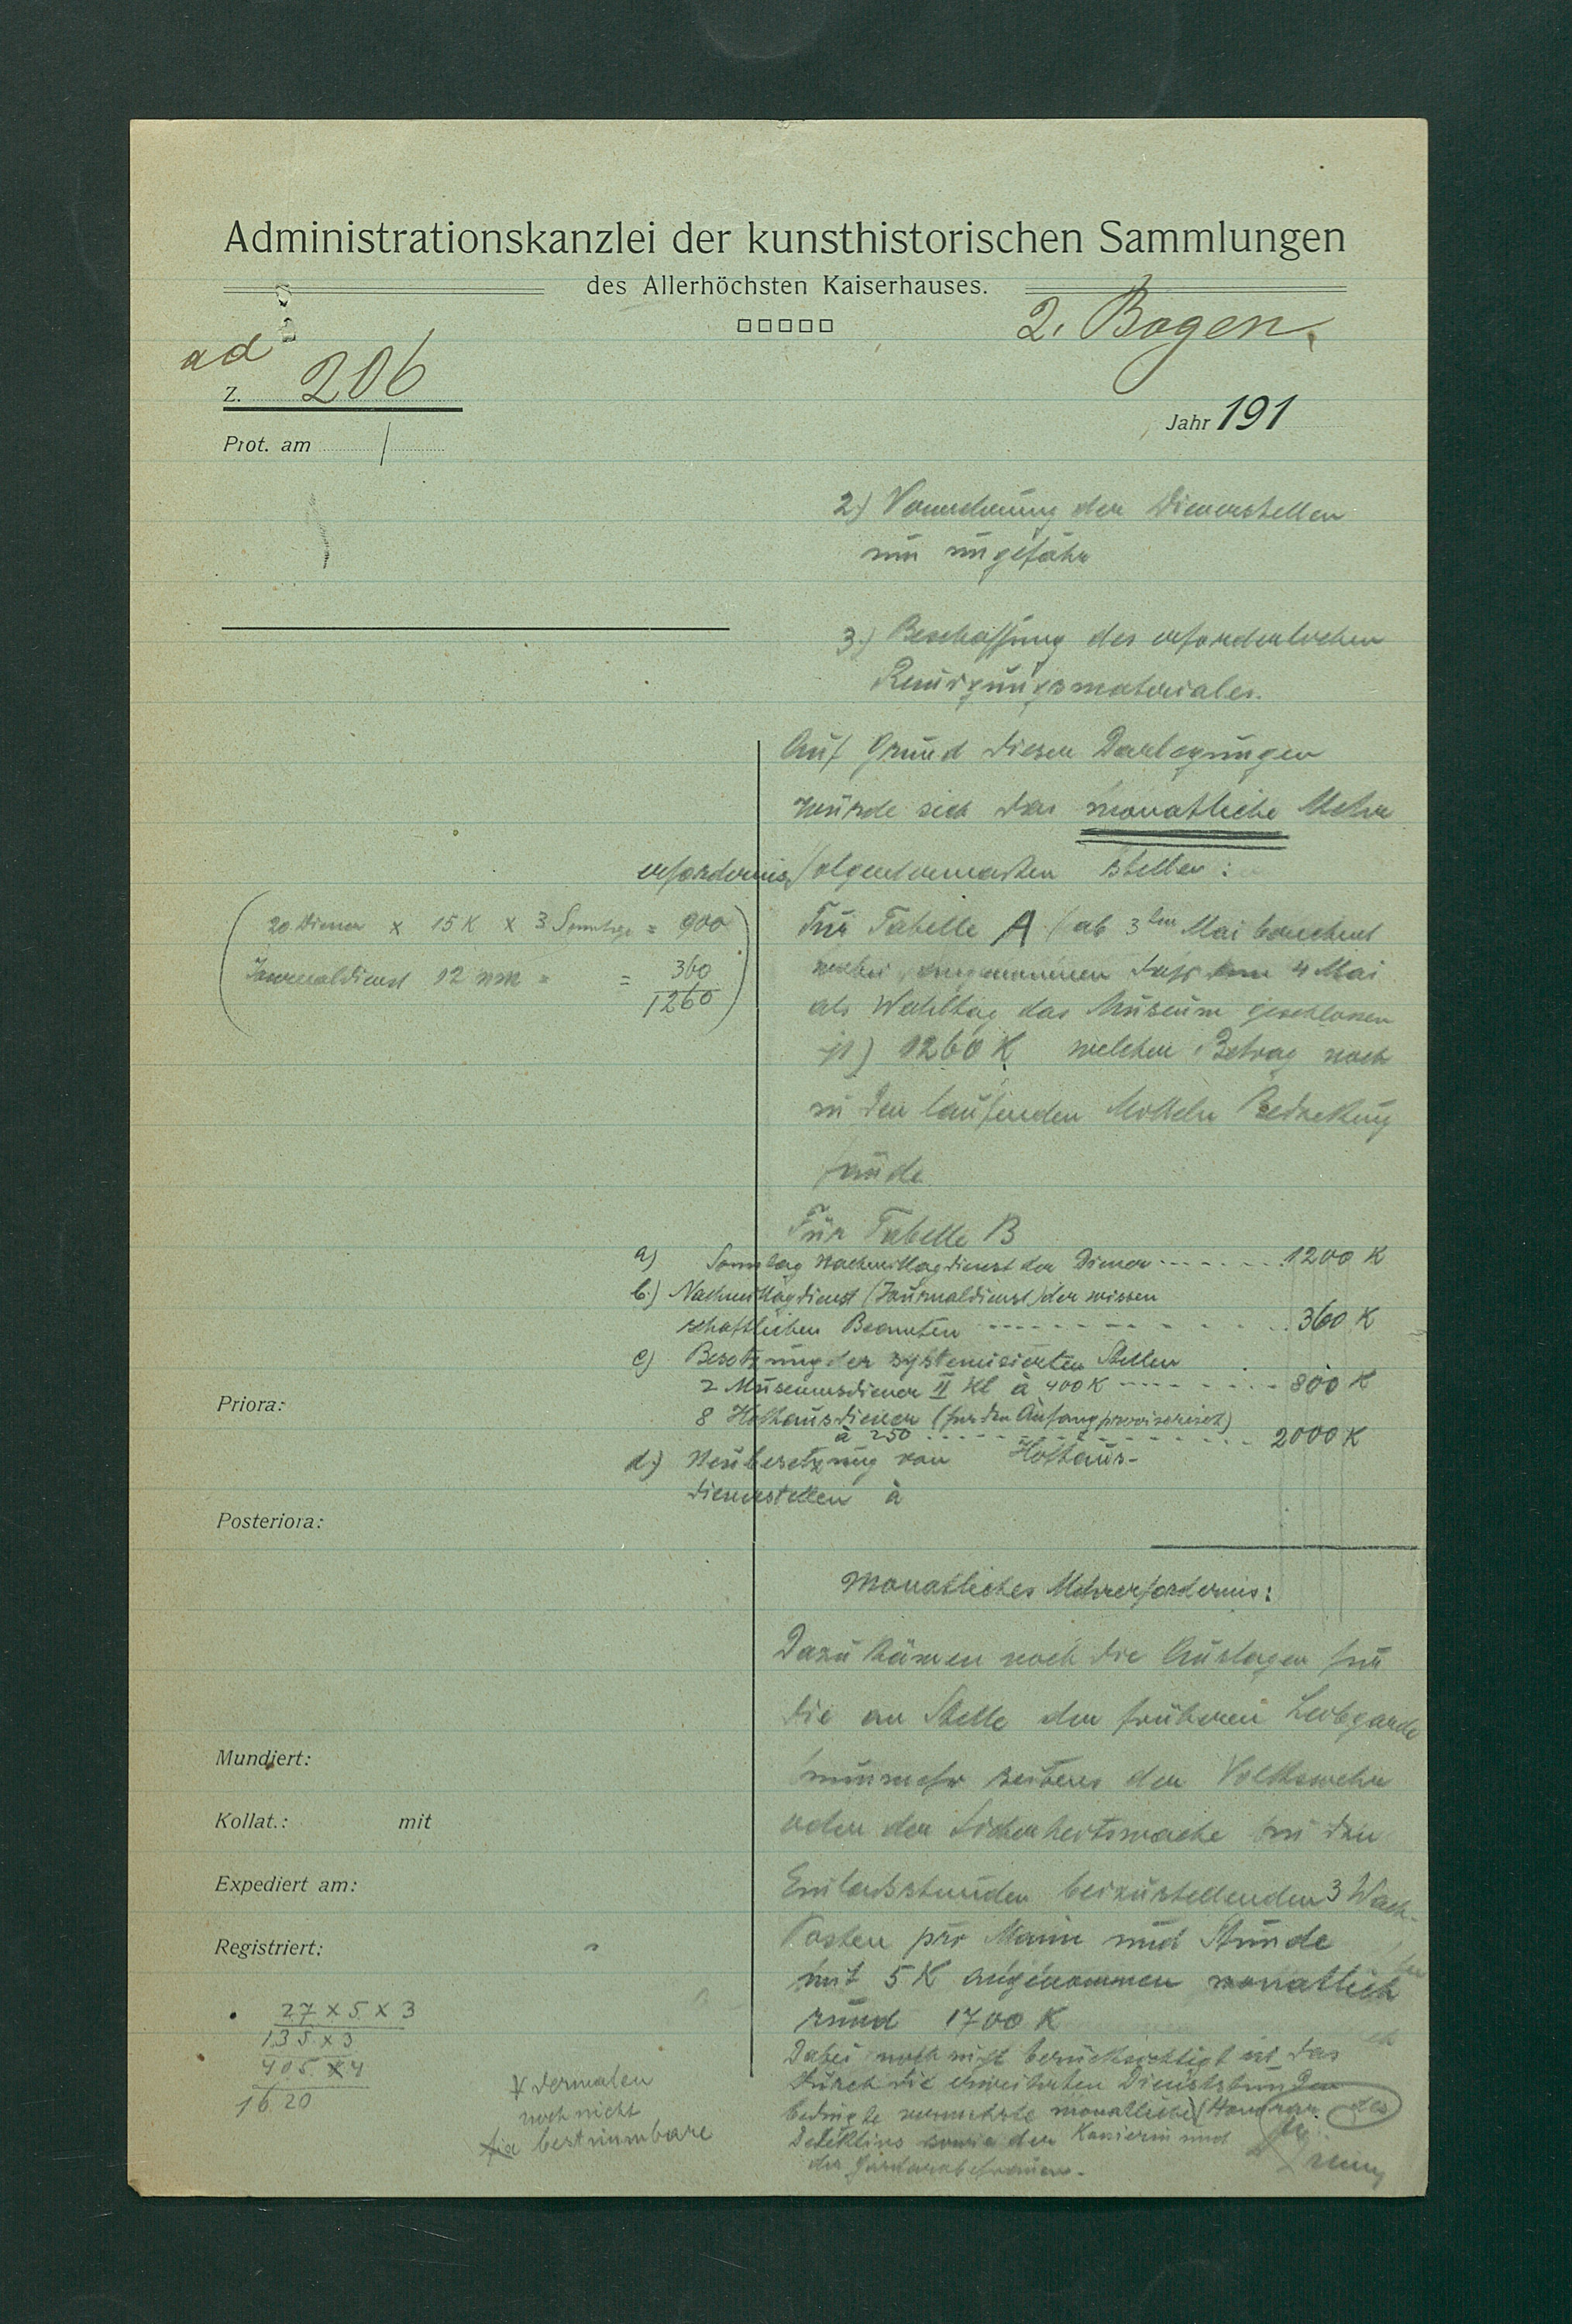 Administrationskanzlei der kunsthistorischen Sammlungen
des Allerhöchsten Kaiserhauses.
2. Bogen.
ad
Z. 206
Jahr 191
Prot. am
2.) Vermehrung der Dienerstellen
um ungefähr
3.) Beschaffung des erforderlichen
Reinigungsmateriales.
Auf Grund dieser Darlegungen
würde sich das monatliche Mehr
erfordernis folgendermaßen stellen:
(20 Diener x 15 K x 3 Sonntage = 900
Journaldienst 12 = 360
1260)
Für Tabelle A (ab 3ten Mai
wobei angenommen dass am 4 Mai
als Wahltag das Museum geschlossen
ist) 1260 K welcher Betrag noch
in den laufenden Mitteln Bedeckung
fände.
Für Tabelle B
a) Sonntag Nachmittagdienst der Diener 1200 K
b.) Nachmittagdienst (Journaldienst) der wissen
schaftlichen Beamten 360 K
c) Besetzung der systemisierten Stellen
2 Museumsdiener II Kl à 400 K 800 K
8 Hofhausdiener (für den Anfang provisorisch)
à 250 2000 K
d.) Neubesetzung von Hofhaus-
dienerstellen à
Priora:
Posteriora:
Monatliches Mehrerfordernis:
Dazu kämen noch die Auslagen für
die an Stelle der früheren Leibgarde
nunmehr seitens der Volkswehr
oder der Sicherheitswache in den
Einlaßstunden beizustellenden 3 Wach-
Posten pro Mann und Stunde
mit 5 K angenommen monatlich
rund 1700 K
Dabei noch nicht berücksichtigt ist das
durch die erweiterten Dienststunden
bedingte vermehrte monatliche Honorar des
Detektivs sowie der Kassierin und
der Garderobefrauen.
Mundiert:
Kollat.: mit
Expediert am:
Registriert:
27 x 5 x 3
135 x 3
405 x 4
1620
x dermalen
noch nicht
bestimmbare